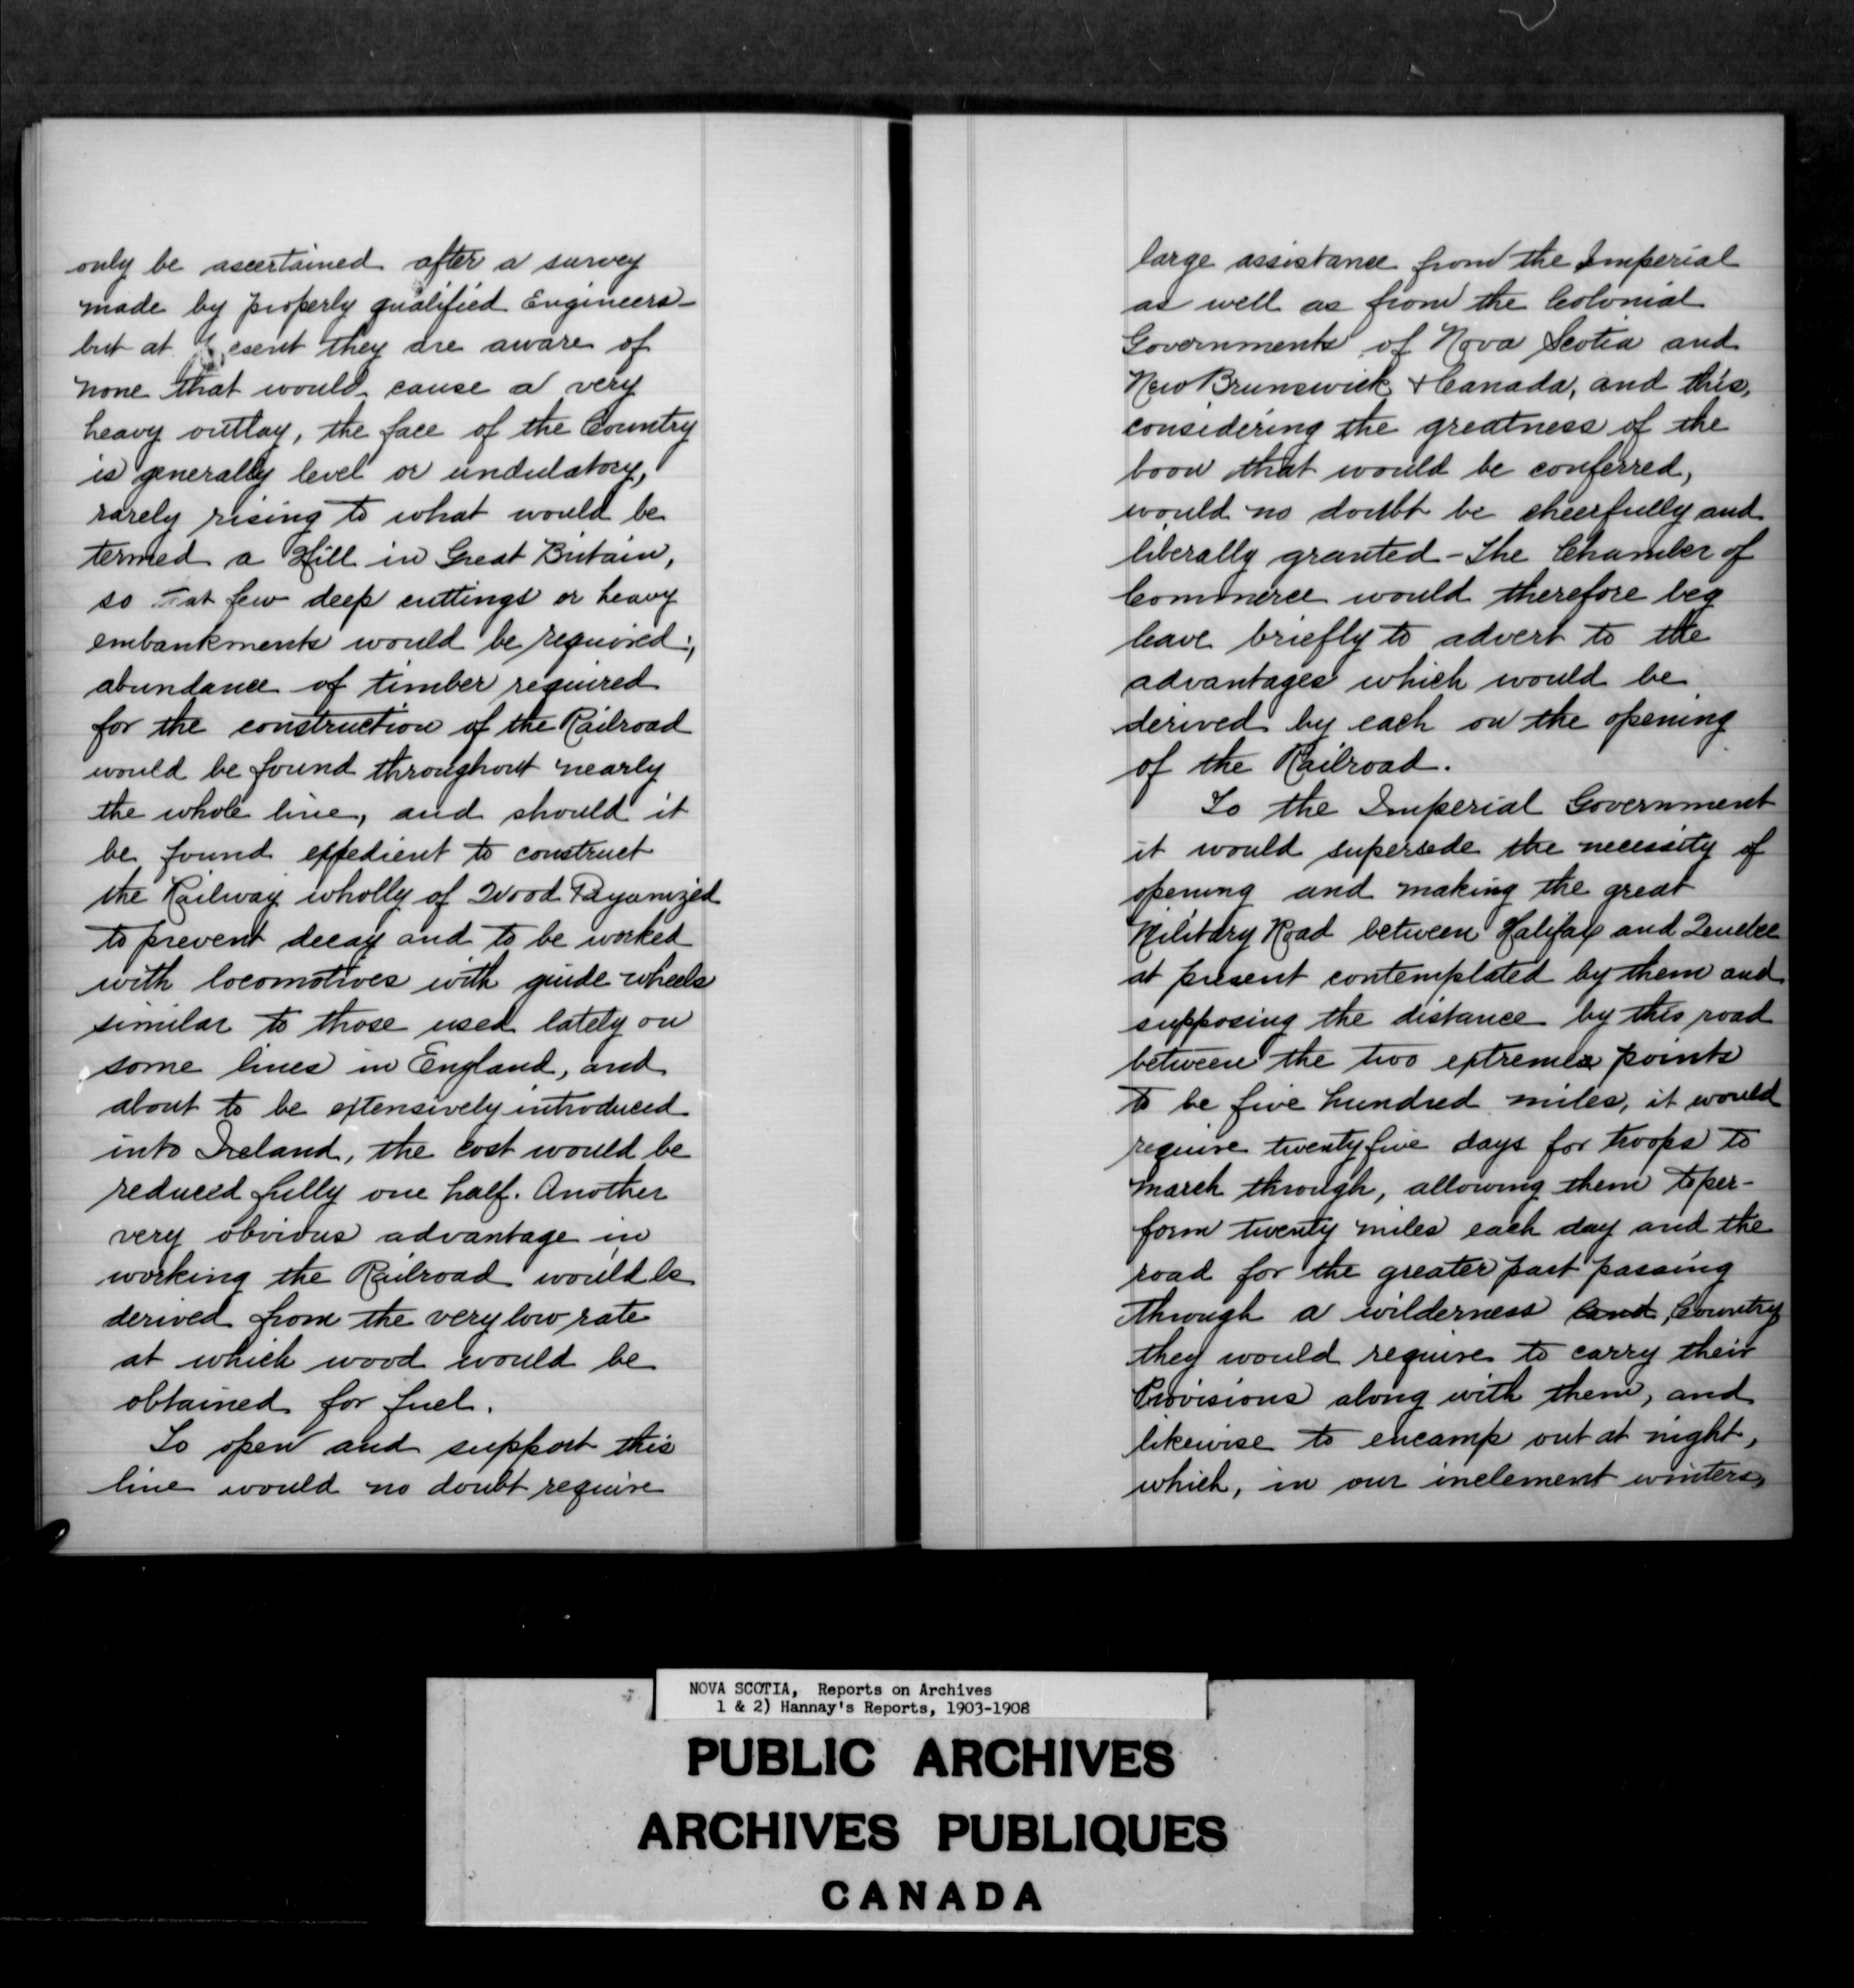 only be ascertained after a survey
made by properly qualified Engineers -
but at present they are aware of
none that would cause a very
heavy outlay, the face of the Country
is generally level or undulatory,
rarely rising to what would be
termed a Hill in Great Britain,
so that few deep cuttings or heavy
embankments would be required;
abundance of timber required
for the construction of the Railroad
would be found throughout nearly
the whole line, and should it
be found expedient to construct
the Railway wholly of Wood Payanized
to prevent decay and to be worked
with locomotives with guide wheels
similar to those used lately on
some lines in England, and
about to be extensively introduced
into Ireland, the cost would be
reduced fully one half. Another
very obvious advantage in
working the Railroad would be
derived from the very low rate
at which wood would be
obtained for fuel.
To open and support this
line would no doubt require
large assistance from the Imperial
as well as from the Colonial
Governments of Nova Scotia and
New Brunswick & Canada, and this,
considering the greatness of the
boon that would be conferred,
would no doubt be cheerfully and
liberally granted - The Chamber of
Commerce would therefore beg
leave briefly to advert to the
advantages which would be
derived by each on the opening
of the Railroad.
To the Imperial Government
it would supersede the necessity of
opening and making the great
Military Road between Halifax and Quebec
at present contemplated by them and
supposing the distance by this road
between the two extremes points
to be five hundred miles, it would
require twenty five days for troops to
march through, allowing them to per-
form twenty miles each day and the
road for the greater part passing
through a wilderness land, Country
they would require to carry their
Provisions along with them, and
likewise to encamp out at night,
which, in our inclement winters,
NOVA SCOTIA, Reports on Archives
1 & 2) Hannay's Reports, 1903-1908
PUBLIC ARCHIVES
ARCHIVES PUBLIQUES
CANADA